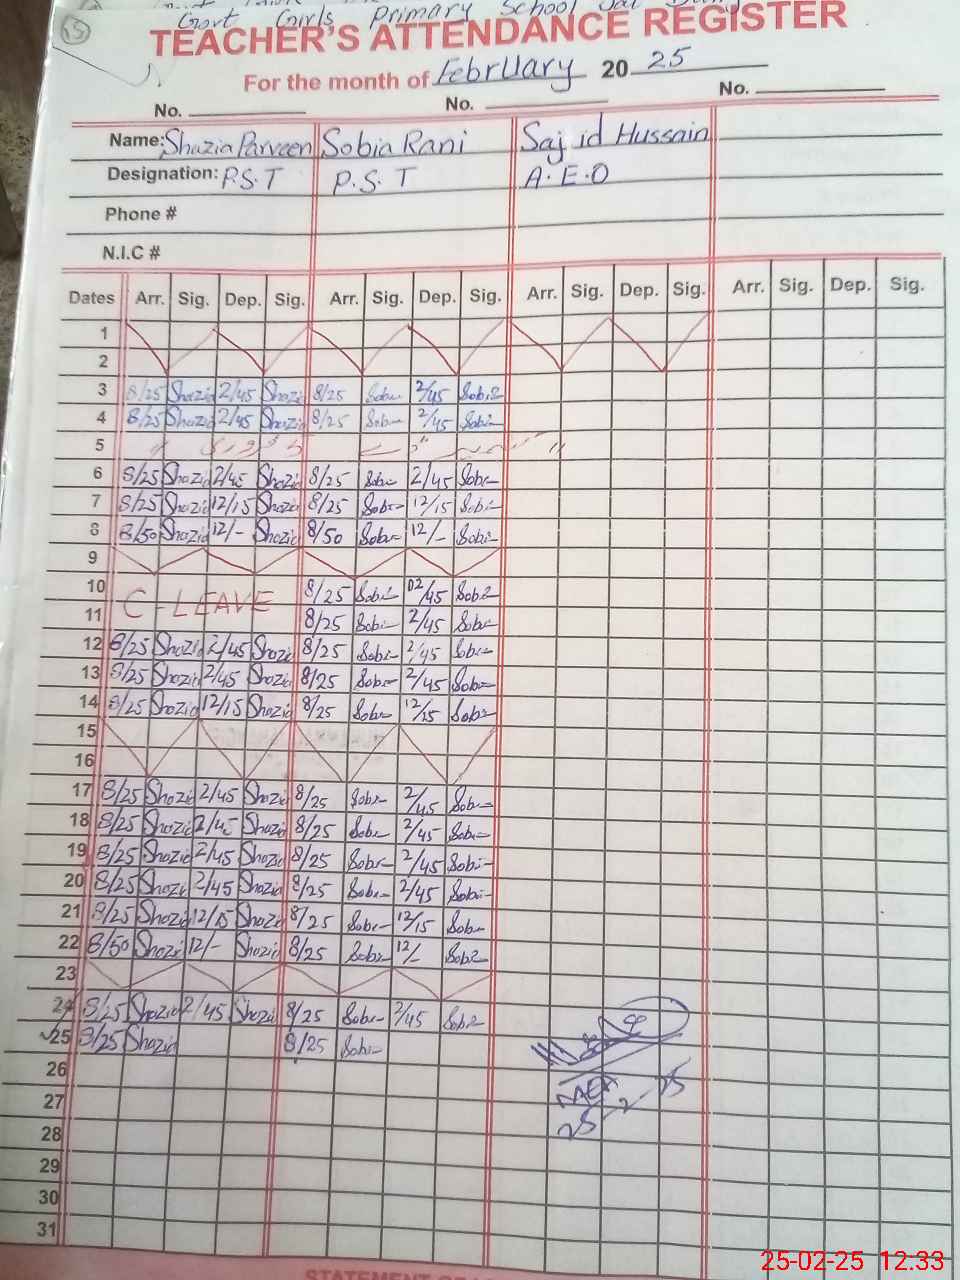 15
Govt Girls Primary School
TEACHER'S ATTENDANCE REGISTER
For the month of February 20 25
No. No. No.
Name: Shazia Parveen Sobia Rani Sajid Hussain
Designation: P.S.T P.S.T A.E.O
Phone #
N.I.C #
Dates Arr. Sig. Dep. Sig. Arr. Sig. Dep. Sig. Arr. Sig. Dep. Sig. Arr. Sig. Dep. Sig.
1
2
3 8/25 Shazia 2/45 Shazia 8/25 Sobia 2/45 Sobia
4 8/25 Shazia 2/45 Shazia 8/25 Sobia 2/45 Sobia
5
6 8/25 Shazia 2/45 Shazia 8/25 Sobia 2/45 Sobia
7 8/25 Shazia 12/15 Shazia 8/25 Sobia 12/15 Sobia
8 8/50 Shazia 12/- Shazia 8/50 Sobia 12/- Sobia
9
10 8/25 Sobia 02/45 Sobia
C-LEAVE
11 8/25 Sobia 2/45 Sobia
12 8/25 Shazia 2/45 Shazia 8/25 Sobia 2/45 Sobia
13 8/25 Shazia 2/45 Shazia 8/25 Sobia 2/45 Sobia
14 8/25 Shazia 12/15 Shazia 8/25 Sobia 12/15 Sobia
15
16
17 8/25 Shazia 2/45 Shazia 8/25 Sobia 2/45 Sobia
18 8/25 Shazia 2/45 Shazia 8/25 Sobia 2/45 Sobia
19 8/25 Shazia 2/45 Shazia 8/25 Sobia 2/45 Sobia
20 8/25 Shazia 2/45 Shazia 8/25 Sobia 2/45 Sobia
21 8/25 Shazia 12/15 Shazia 8/25 Sobia 12/15 Sobia
22 8/50 Shazia 12/- Shazia 8/25 Sobia 12/- Sobia
23
24 8/25 Shazia 2/45 Shazia 8/25 Sobia 2/45 Sobia
25 8/25 Shazia 8/25 Sobia
26
27
25-2-25
28
29
30
31
25-02-25 12:33